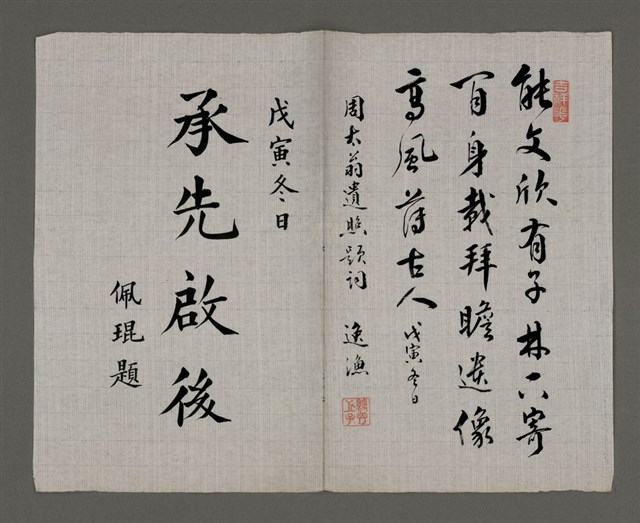 能文欣有子林下寄
百身載拜瞻遺像
高風薄古人 戊寅冬日
周太翁遺照題詞 逸漁
戊寅冬日
承先啟後
佩琨題